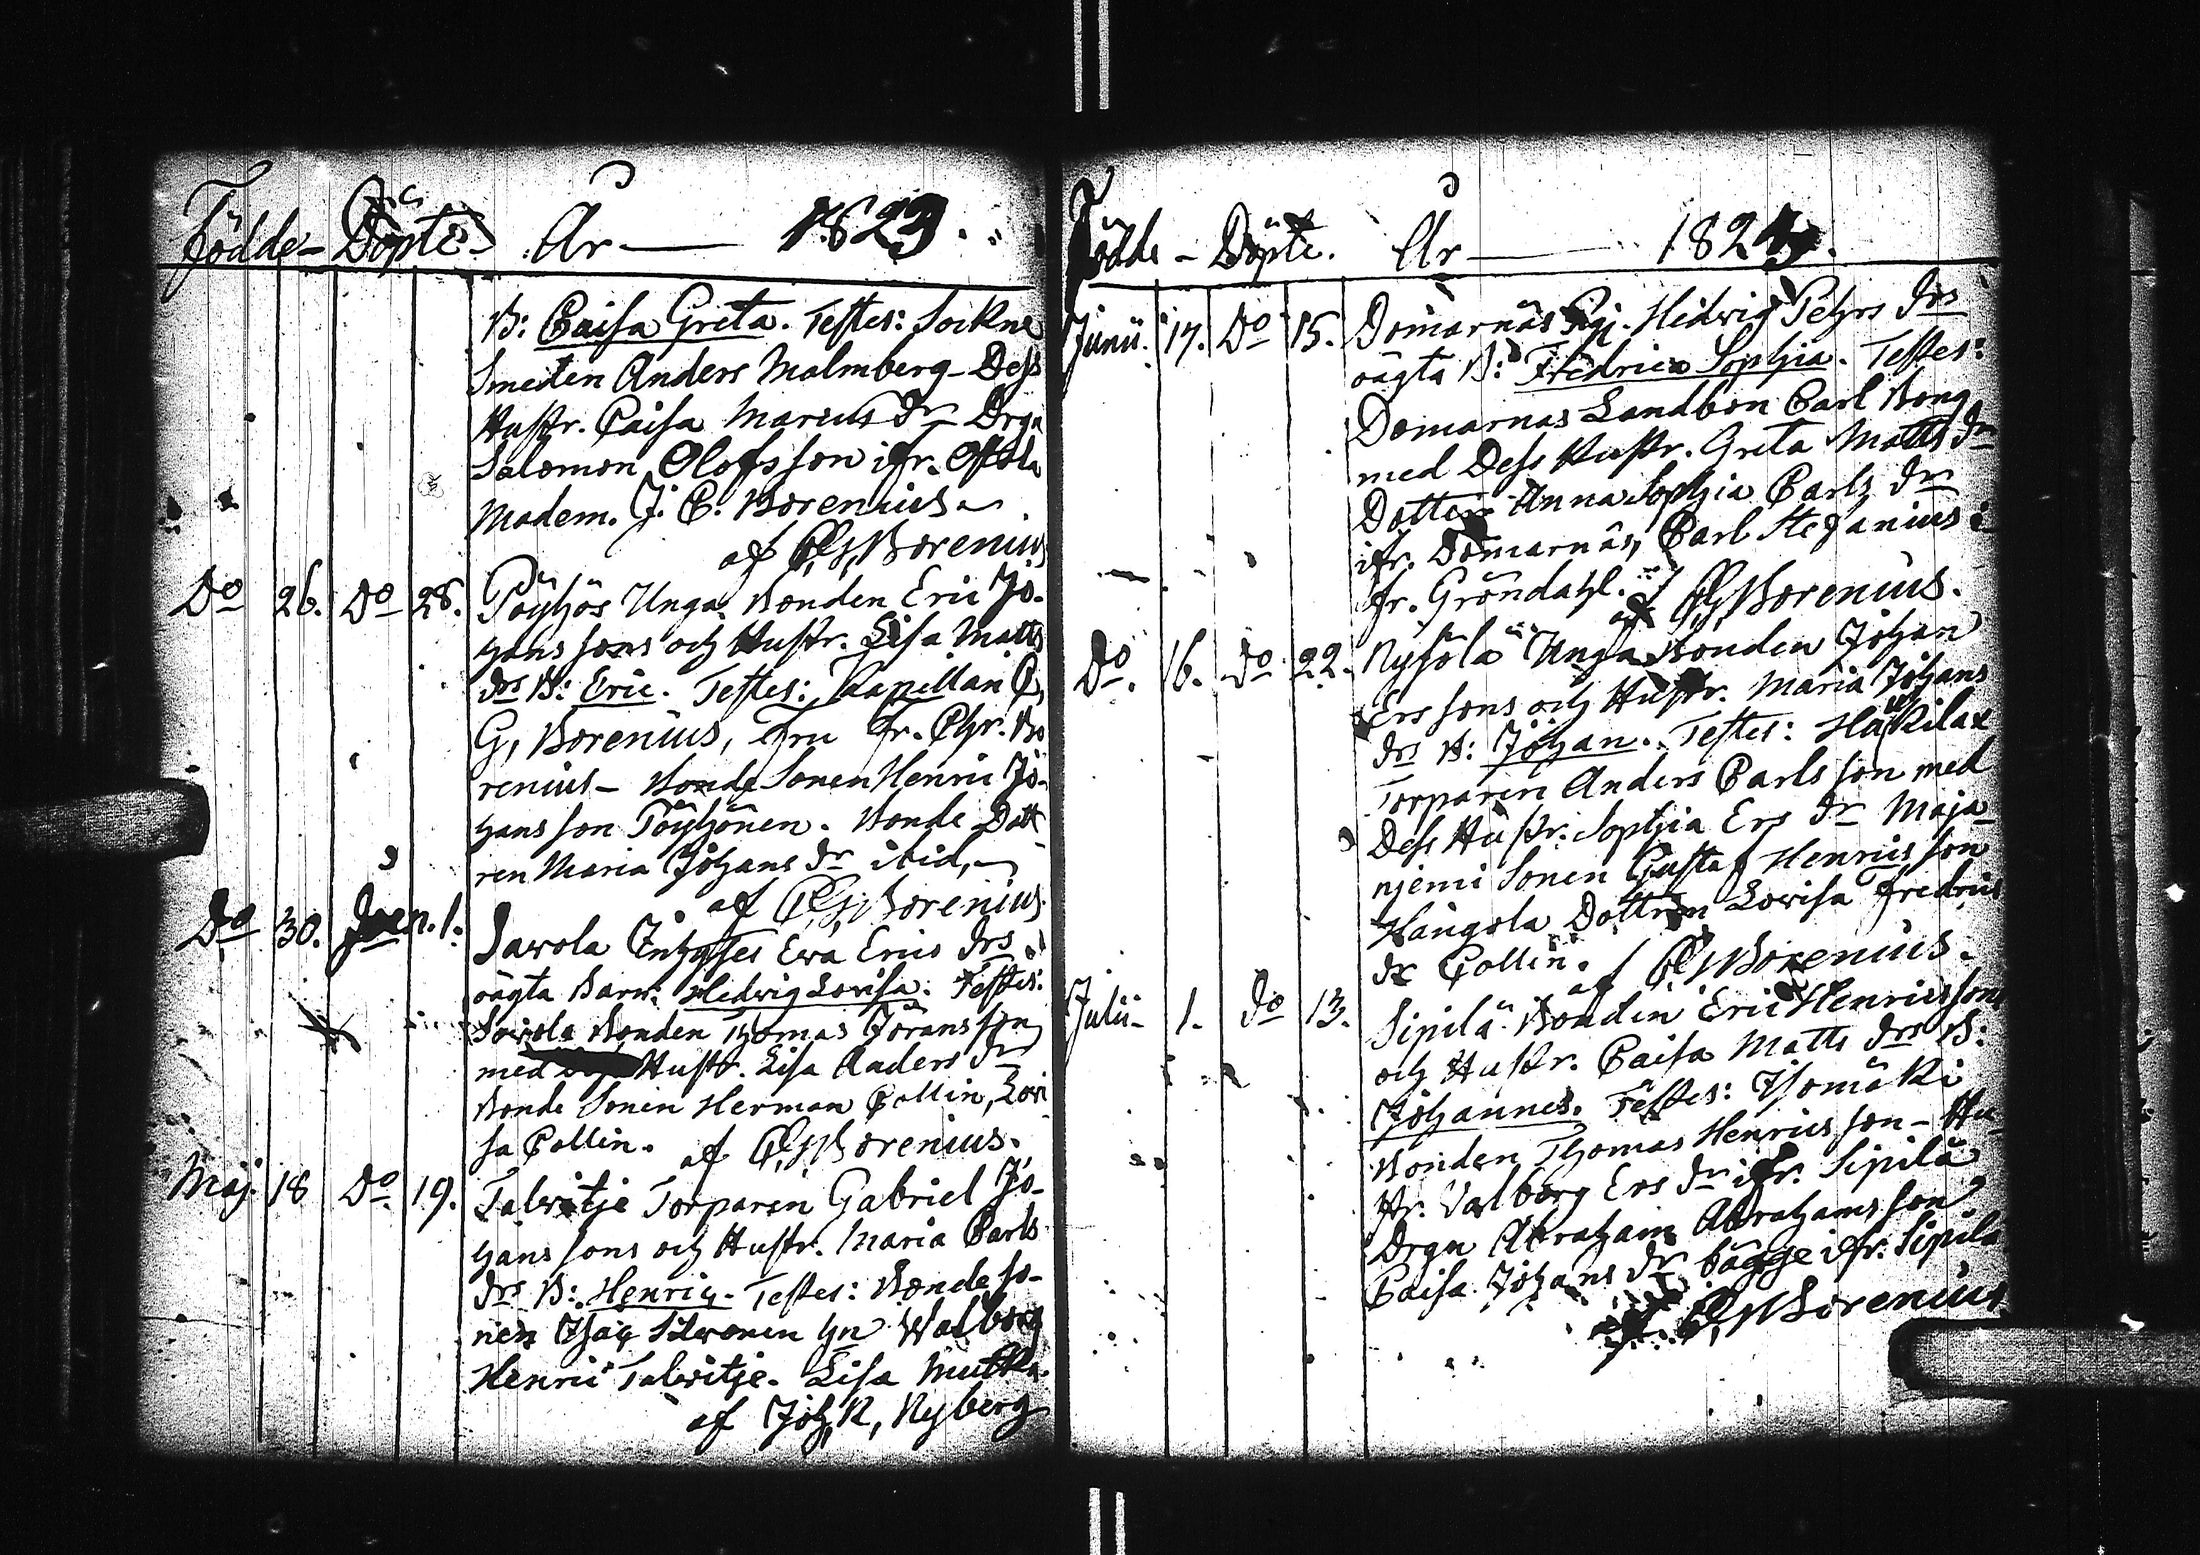 Födde - Döpte - År — 1823.
B: Caisa Greta. Testes: Sockne
Smeden Anders Malmberg - Dess
Hustr. Caisa Marcus dr - Drgn
Salomon Olofsson ifr.
Madem. J. C. Borenius
af C, G, Borenius
Do 26. Do 28. Pöyhös Unga Bonden Eric Jo-
hans sons och Hustr. Lisa Matts
drs B: Eric. Testes: Kapellan C,
G, Borenius, Fru Fr. Chr. Bo
renius - Bonde Sonen Henric Jo-
hans son Pöyhönen. Bonde Dott
ren Maria Johans dr ibid,
af C, G, Borenius
Do 30. 1. Sawola Inhyses Ewa Erics drs
oägta Barn: Hedwig Lovisa. Testes:
Sawola Bonden Thomas Jörans son
med Hustr. Lisa Anders dr
Bonde Sonen Herman Collin, Lovi
sa Collin. af C, G, Borenius.
Maj 18 Do 19. Talwitje Torparen Gabriel Jo-
hans sons och Hustr. Maria Carls
drs B: Henric. Testes: Bonde so-
nen Isac hn Walborg
Henric Talvitje. Lisa
af Joh, R, Nyberg
Födde - Döpte. År — 1823.
Junii 14. Do 15. Domarnäs Pig. Hedwig Pehrs drs
oägta B: Fredrica Sophia. Testes:
Domarnäs Landbon Carl Bong
med Dess Hustr. Greta Matts dr
Dottern Anna Sophia Carls dr
ifr. Domarnäs, Carl Stefanius i
fr. Gröndahl. af C, G, Borenius.
Do. 16. Do 22. Unga Bonden Johan
Ers sons och Hustr. Maria Johans
drs B: Johan. Testes:
Torparen Anders Carls son med
Dess Hustr. Sophia Ers dr Maja-
njemi Sonen Gustaf Henrics son
Hångola Dottren Lovisa Fredrics
dr Collin. af C, G, Borenius.
Julii - 1. do 13. Sipilä Bonden Eric Henrics sons
och Hustr. Caisa Matts drs B:
Johannes. Testes: Isomäki
Bonden Thomas Henrics son - Hu-
str. Valborg Ers dr ifr. Sipilä
Drgn Abraham Abrahams son
Caisa Johans dr bägge ifr. Sipilä
af C, G, Borenius